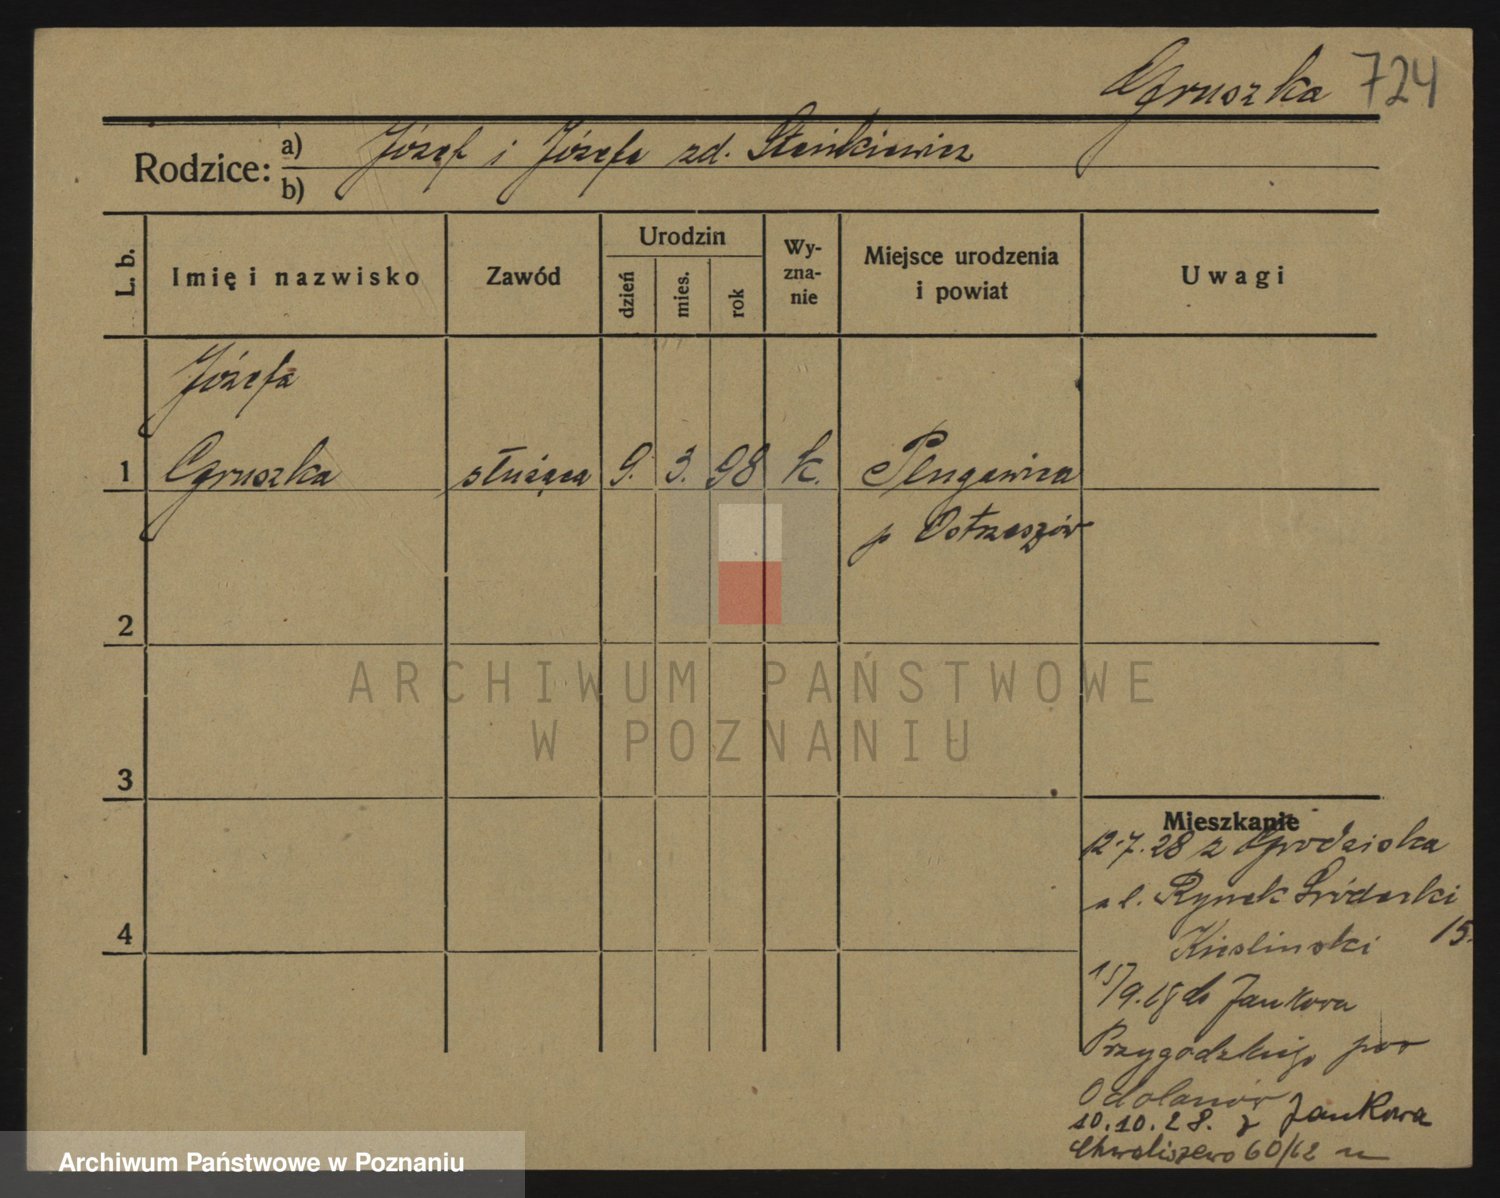 Gruszka 724
Rodzice: a) Józef i Józefa zd. Steinkiewicz
b)
L. b. Imię i nazwisko Zawód Urodzin dzień mies. rok Wyzna-nie Miejsce urodzenia i powiat Uwagi
Józefa
1 Gruszka służąca 9. 3. 98 k. Plugawica
p Ostrzeszów
2
ARCHIWUM PAŃSTWOWE
W POZNANIU
3
Mieszkanie
12.7.28 z Grodziska
ul. Rynek Śródecki
15.
15/9.28 do Jankowa
Przygodzkiego pow
Odolanów
10.10.28. z Jankowa
Chwaliszewo 60/62
4
Archiwum Państwowe w Poznaniu